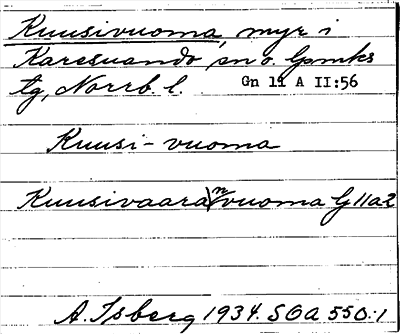 Kuusivuoma, myr i
Karesuando sn o. Lpmks
tg, Norrb. l. Gn 11 A II:56
Kuusi-vuoma
Kuusivaara vuoma G 11a2
A. Isberg 1934. SOA 550:1